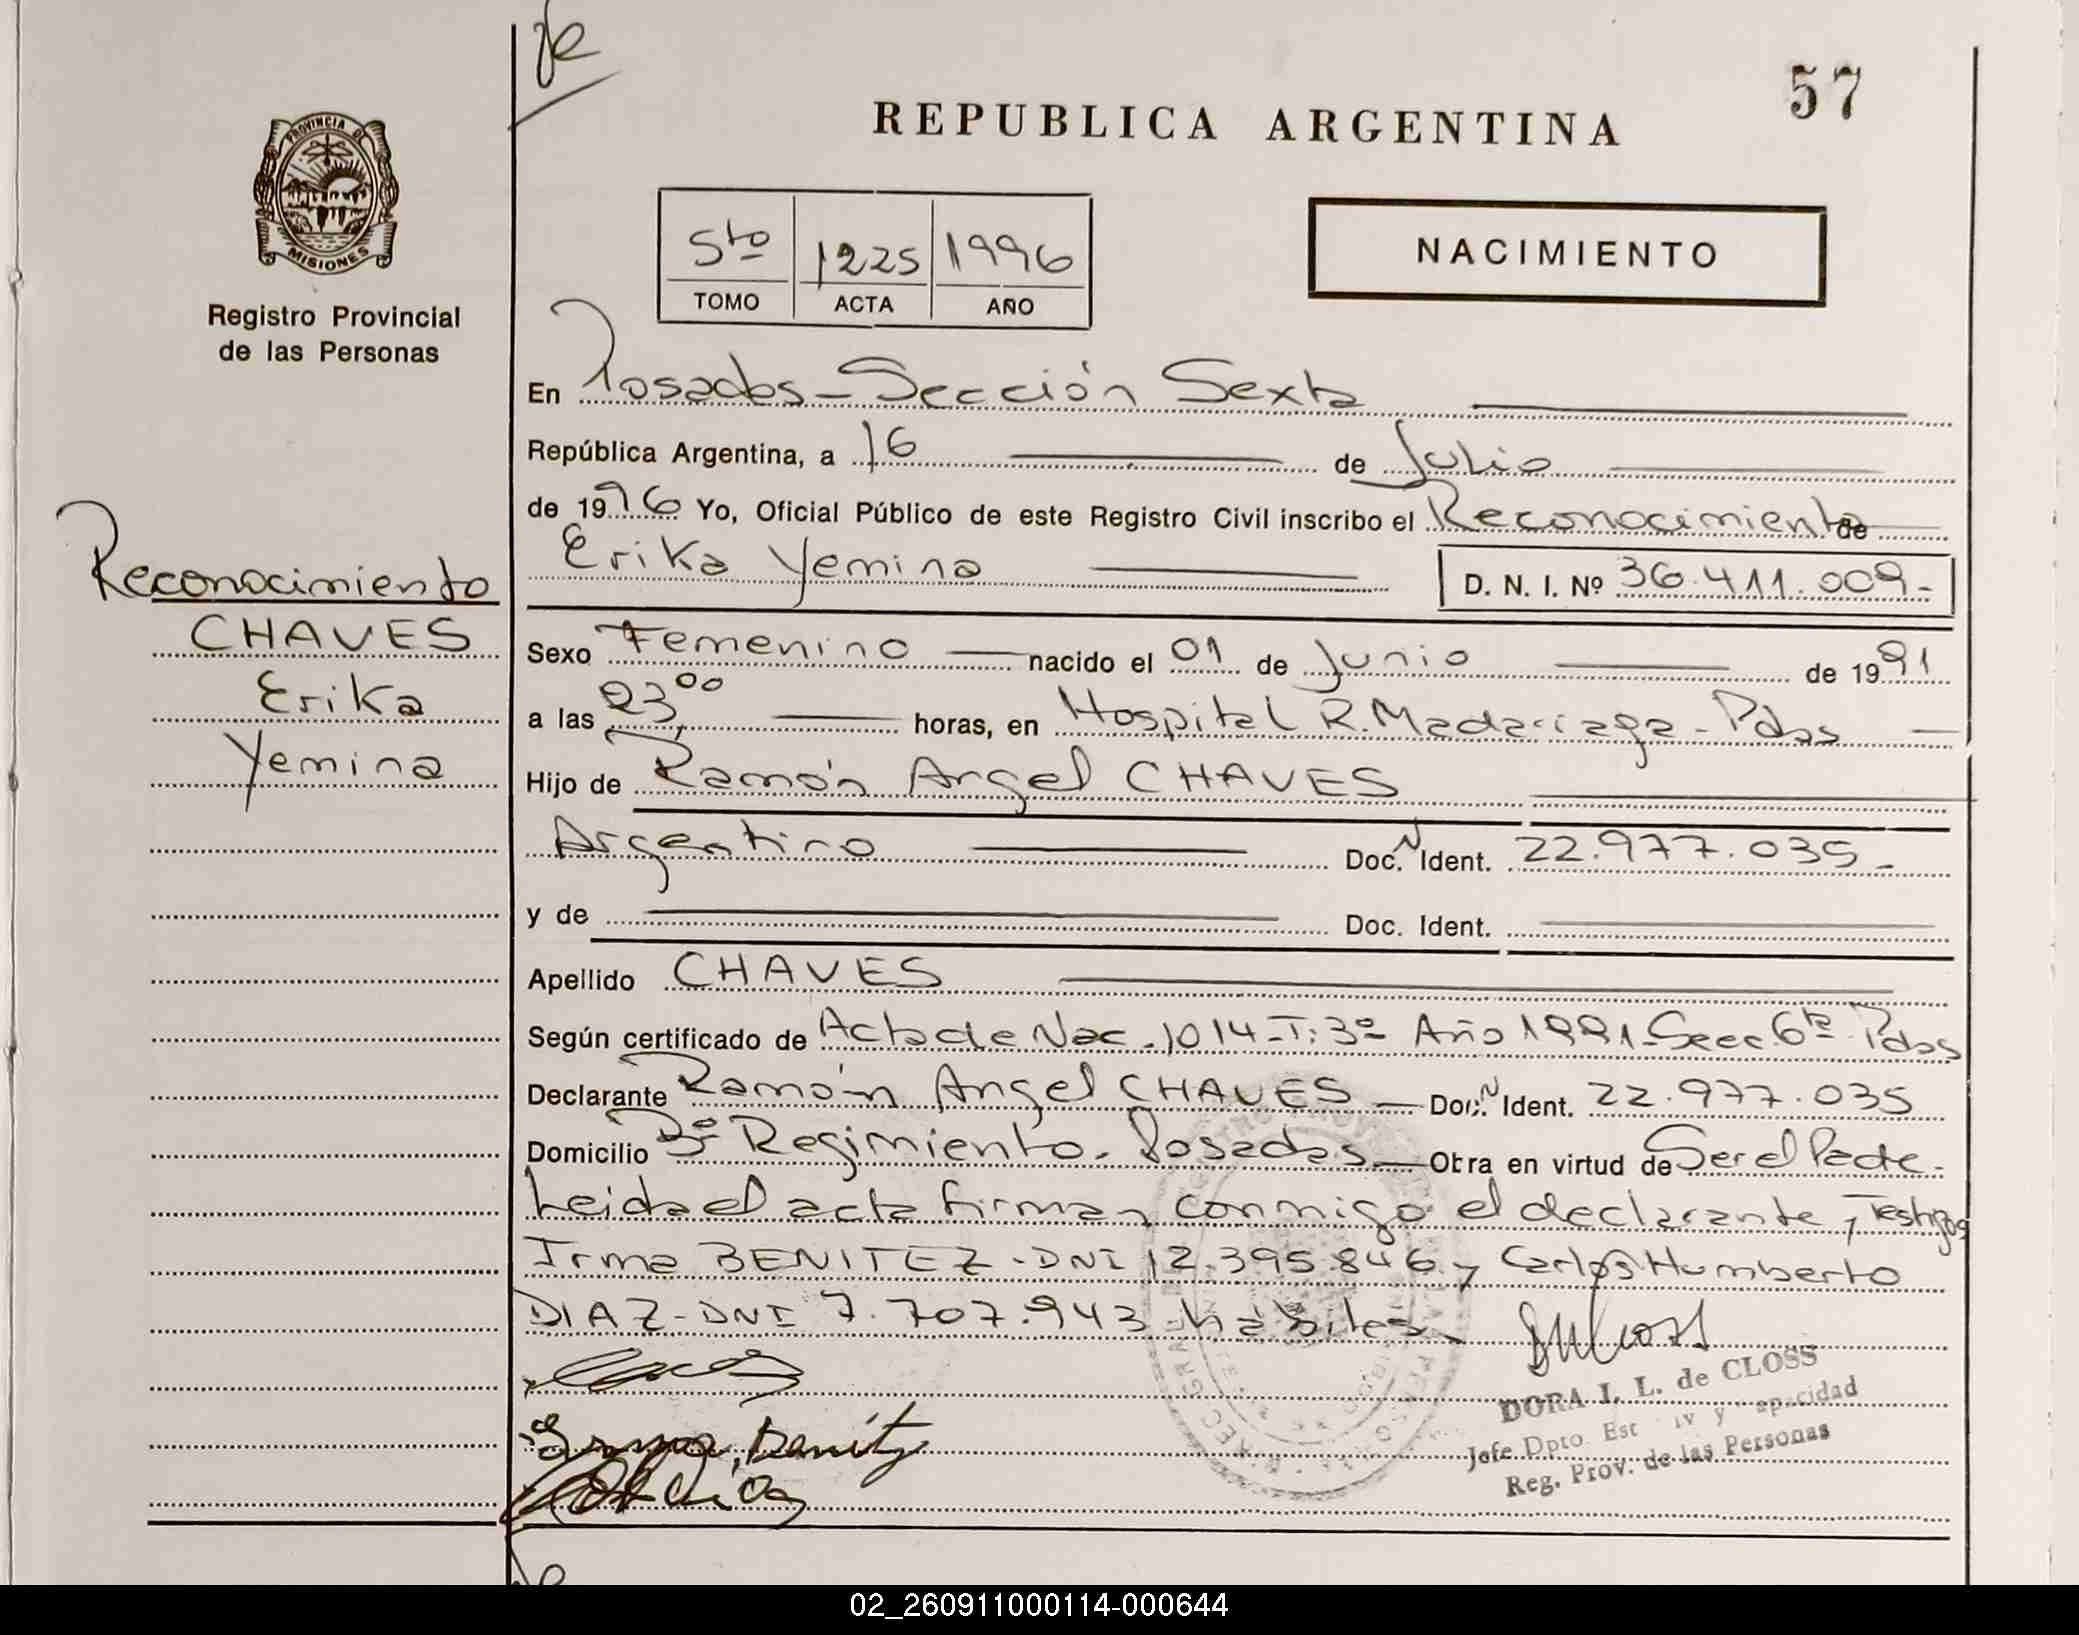 57
REPUBLICA ARGENTINA
PROVINCIA DE
MISIONES
Registro Provincial
de las Personas
5to 1225 1996
TOMO ACTA AÑO
NACIMIENTO
En Posadas - Sección Sexta
República Argentina, a 16 de Julio
de 1996 Yo, Oficial Público de este Registro Civil inscribo el Reconocimiento de
Erika Yemina D. N. I. Nº 36.411.009-
Reconocimiento
CHAVES
Erika
Yemina
Sexo Femenino nacido el 01 de Junio de 1991
a las 23,00 horas, en Hospital R. Madariaga - Pdas
Hijo de Ramón Angel CHAVES
Argentino Doc. N Ident. 22.977.035-
y de Doc. Ident.
Apellido CHAVES
Según certificado de Acta de Nac. 1014-T: 3º Año 1991-Secc 6ta Pdas
Declarante Ramón Angel CHAVES - Doc. N Ident. 22.977.035
Domicilio 3º Regimiento. Posadas - Otra en virtud de Ser el Padre-
Leida el acta firman conmigo el declarante y Testigos
Irma BENITEZ - DNI 12.395.846 y Carlos Humberto
DIAZ - DNI 7.707.943 - hábiles.
Irma Benitz
DORA I. L. de CLOSS
Jefe Dpto Est iv y apacidad
Reg. Prov. de las Personas
02_260911000114-000644